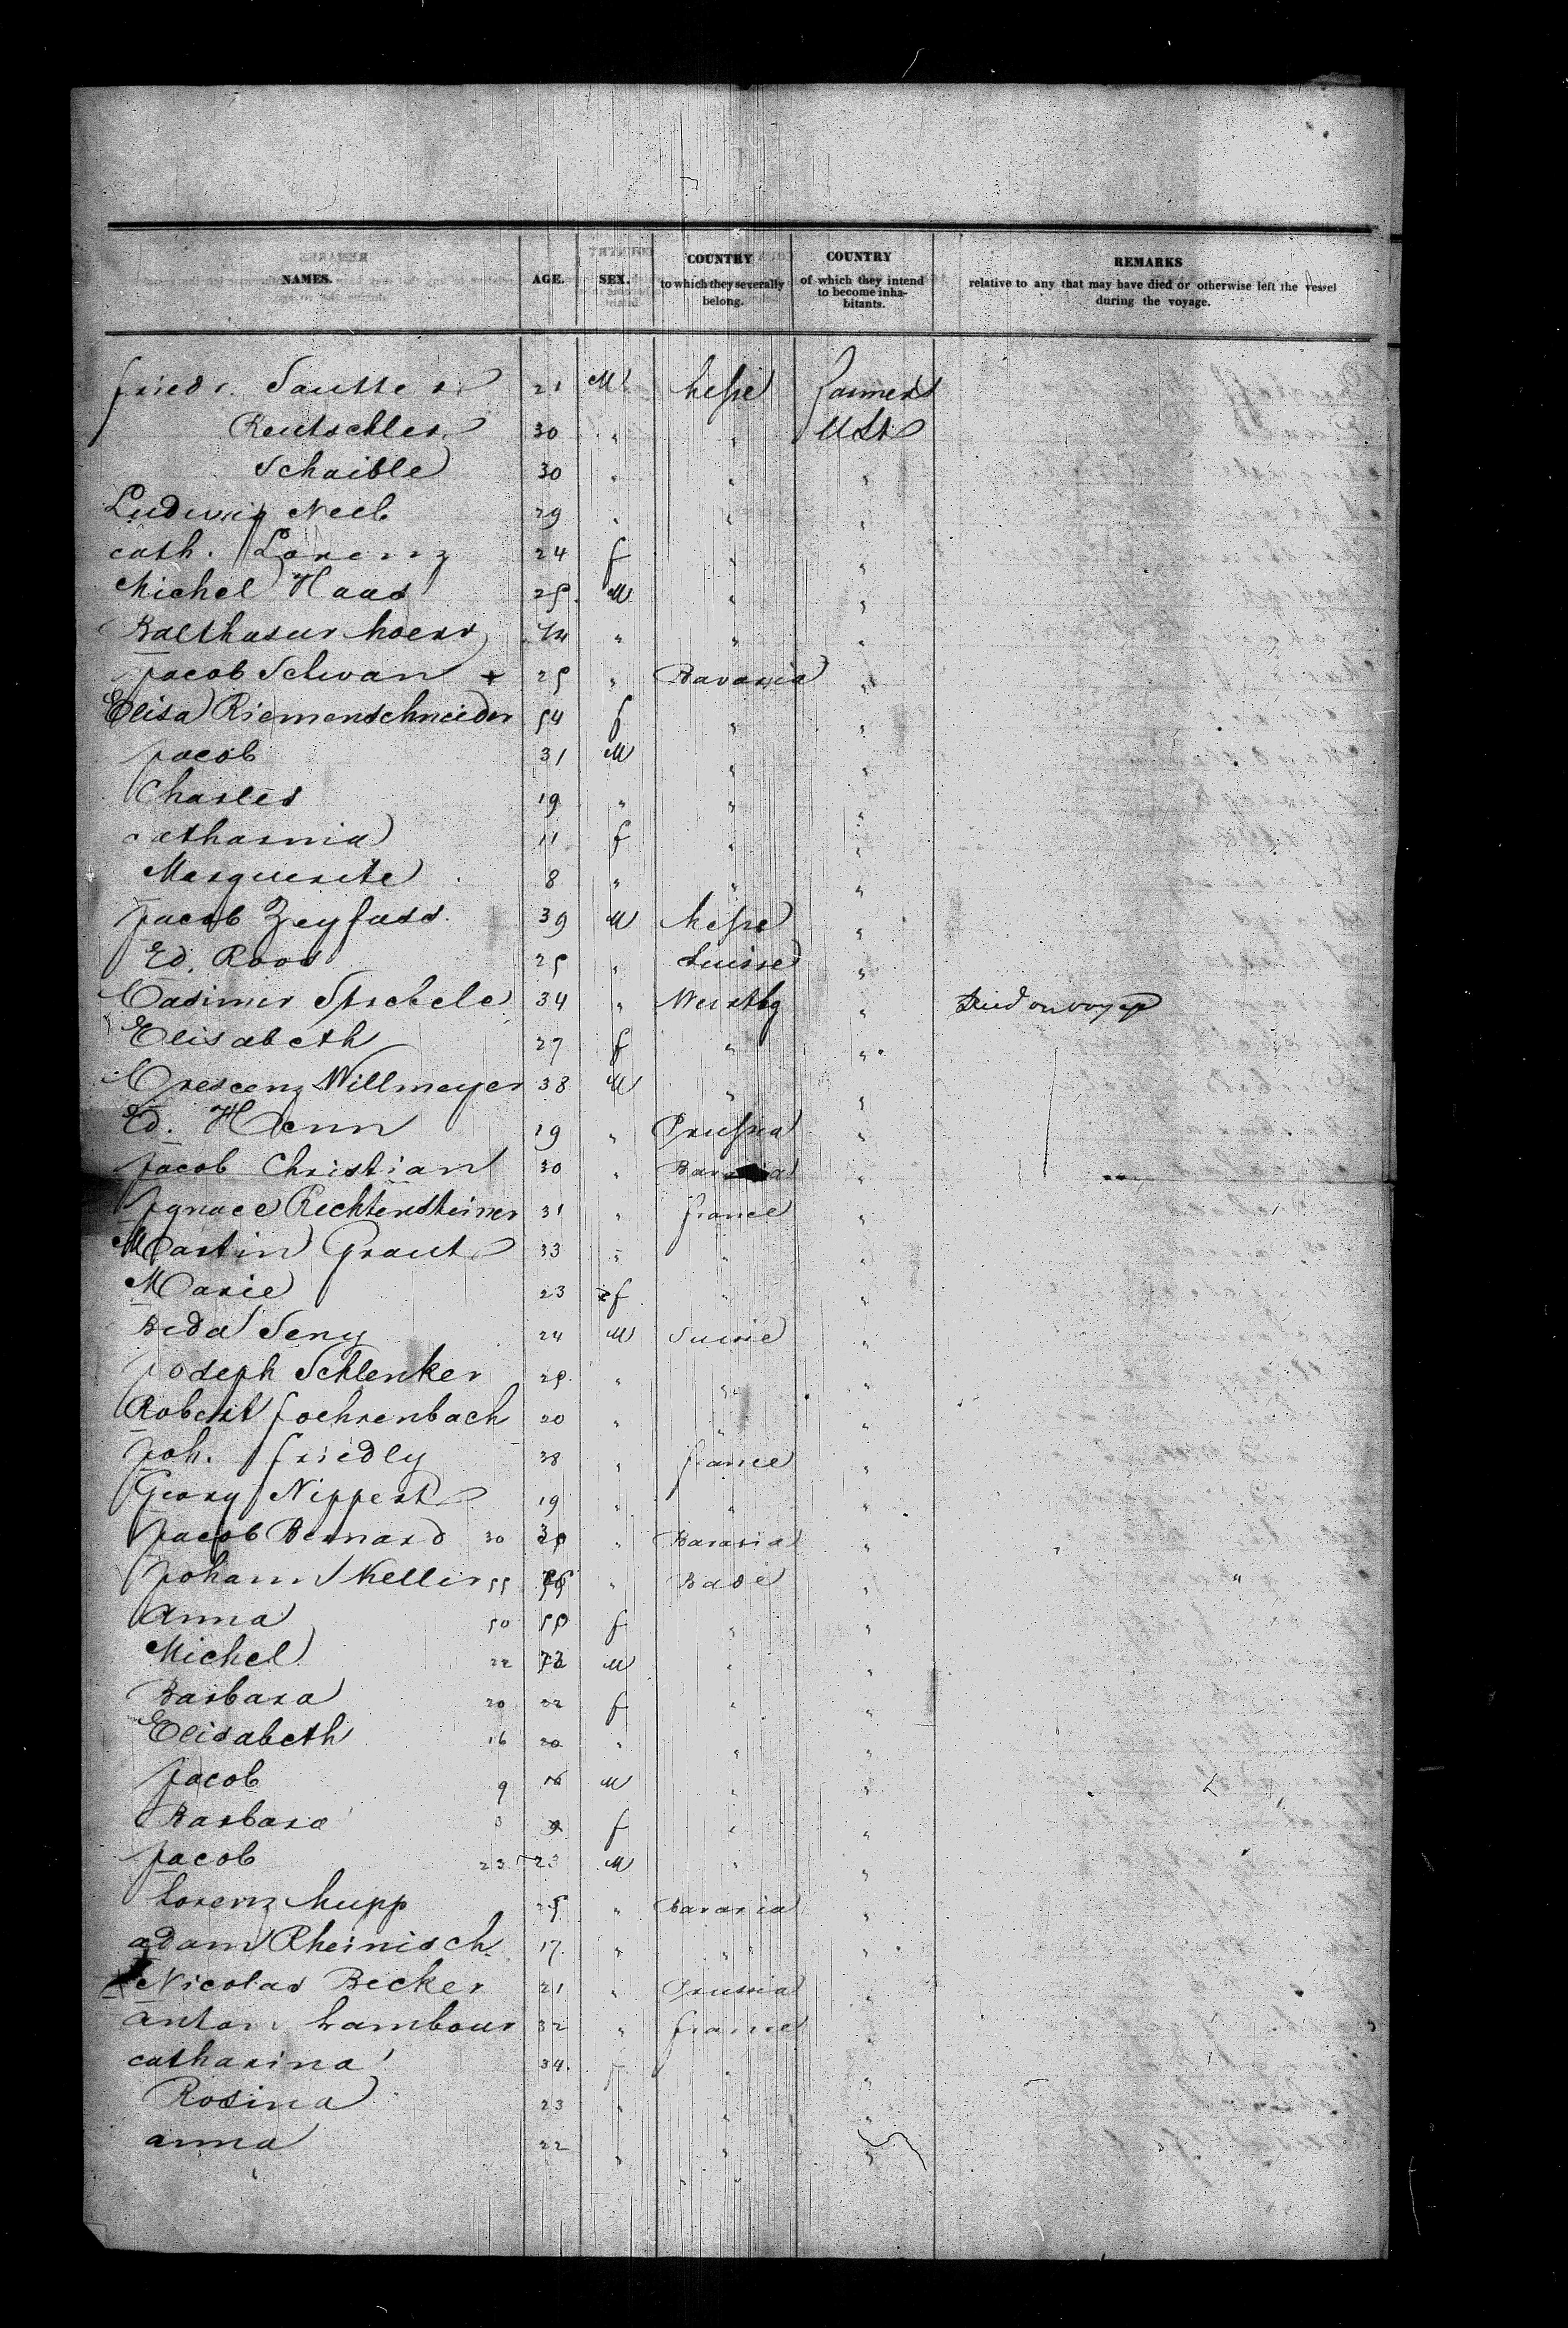 NAMES. AGE. SEX. COUNTRY to which they severally belong. COUNTRY of which they intend to become inhabitants. REMARKS relative to any that may have died or otherwise left the vessel during the voyage.
friedr. Sautter 21 M hesse farmers
Reutschler 30 " " USt
Schaible 30 " " "
Ludwig Neeb 29 " " "
cath. Lorenz 24 f " "
Michel Haas 25 M " "
Balthasar hoerr " " "
Jacob Schwan + 25 " Bavaria "
Elisa Riemenschneider 54 f " "
Jacob 31 M " "
Charles 19 " " "
catharnia 11 f " "
Marguerite 8 " " "
Jacob Zeyfass 39 M hesse "
Ed. Roos 25 " Suisse "
Casimir 34 " Wurtbg " Died on voyage
Elisabeth 27 f " "
Crescenz Willmeyer 38 M " "
Ed. Henn 19 " Prussia "
Jacob Christian 30 " Bavaria "
Ignace Rechtensteiner 31 " france "
Martin Graut 33 " " "
Marie 23 f " "
Beda Seny 24 M Suisse "
Joseph Schlenker 25 " " "
Robert foehrenbach 20 " " "
Joh. friedly 38 " france "
Georg Nippert 19 " " "
Jacob Bernard 30 " Bavaria "
Johann Keller 55 " Bade "
Anna 50 f " "
Michel 22 M " "
Barbara 20 22 f " "
Elisabeth 16 20 " " "
Jacob 9 16 M " "
Barbara 9 f " "
Jacob 23 23 M " "
Lorenz hupp 25 " Bavaria "
adam Rheinisch 17 " " "
Nicolas Becker 21 " Prussia "
anton Lambour 32 " france "
catharina 34 f " "
Rosina 23 " " "
anna 22 " " "